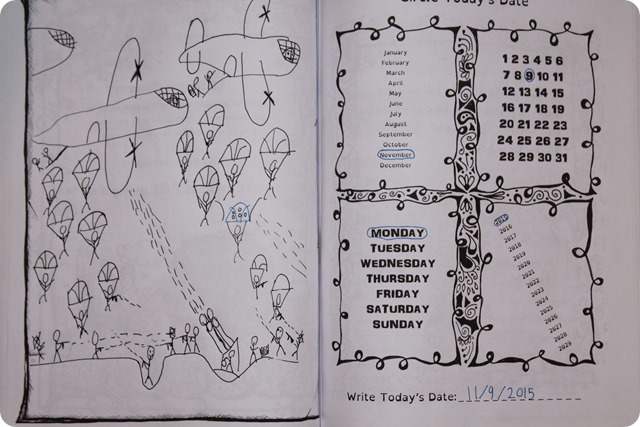 Circle Today's Date
January
February
March
April
May
June
July
August
September
October
November
December
1 2 3 4 5 6
7 8 9 10 11
12 13 14 15
16 17 18 19
20 21 22 23
24 25 26 27
28 29 30 31
MONDAY
TUESDAY
WEDNESDAY
THURSDAY
FRIDAY
SATURDAY
SUNDAY
2015
2016
2017
2018
2019
2020
2021
2022
2023
2024
2025
2026
2027
2028
2029
Write Today's Date: 11/9/2015